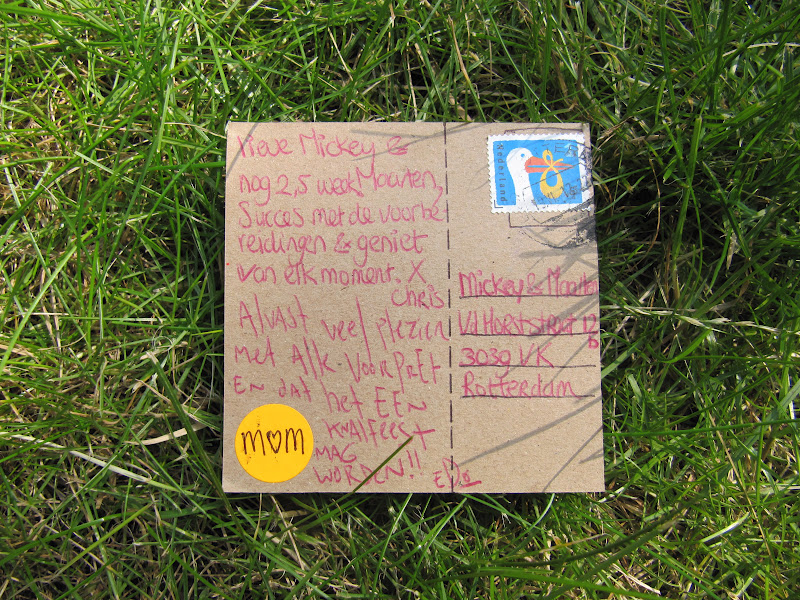 lieve Mickey &
nog 2,5 week! Maarten,
Succes met de voorbe
reidingen & geniet
van elk moment. X
Chris
Alvast veel plezier
met Alle voorpret
EN dat het EEN
KNALFEEST
MAG
WORDEN!!
m♥m
Nederland
Mickey & Maarten
Vd Horststraat 12
b
3039 VK
Rotterdam